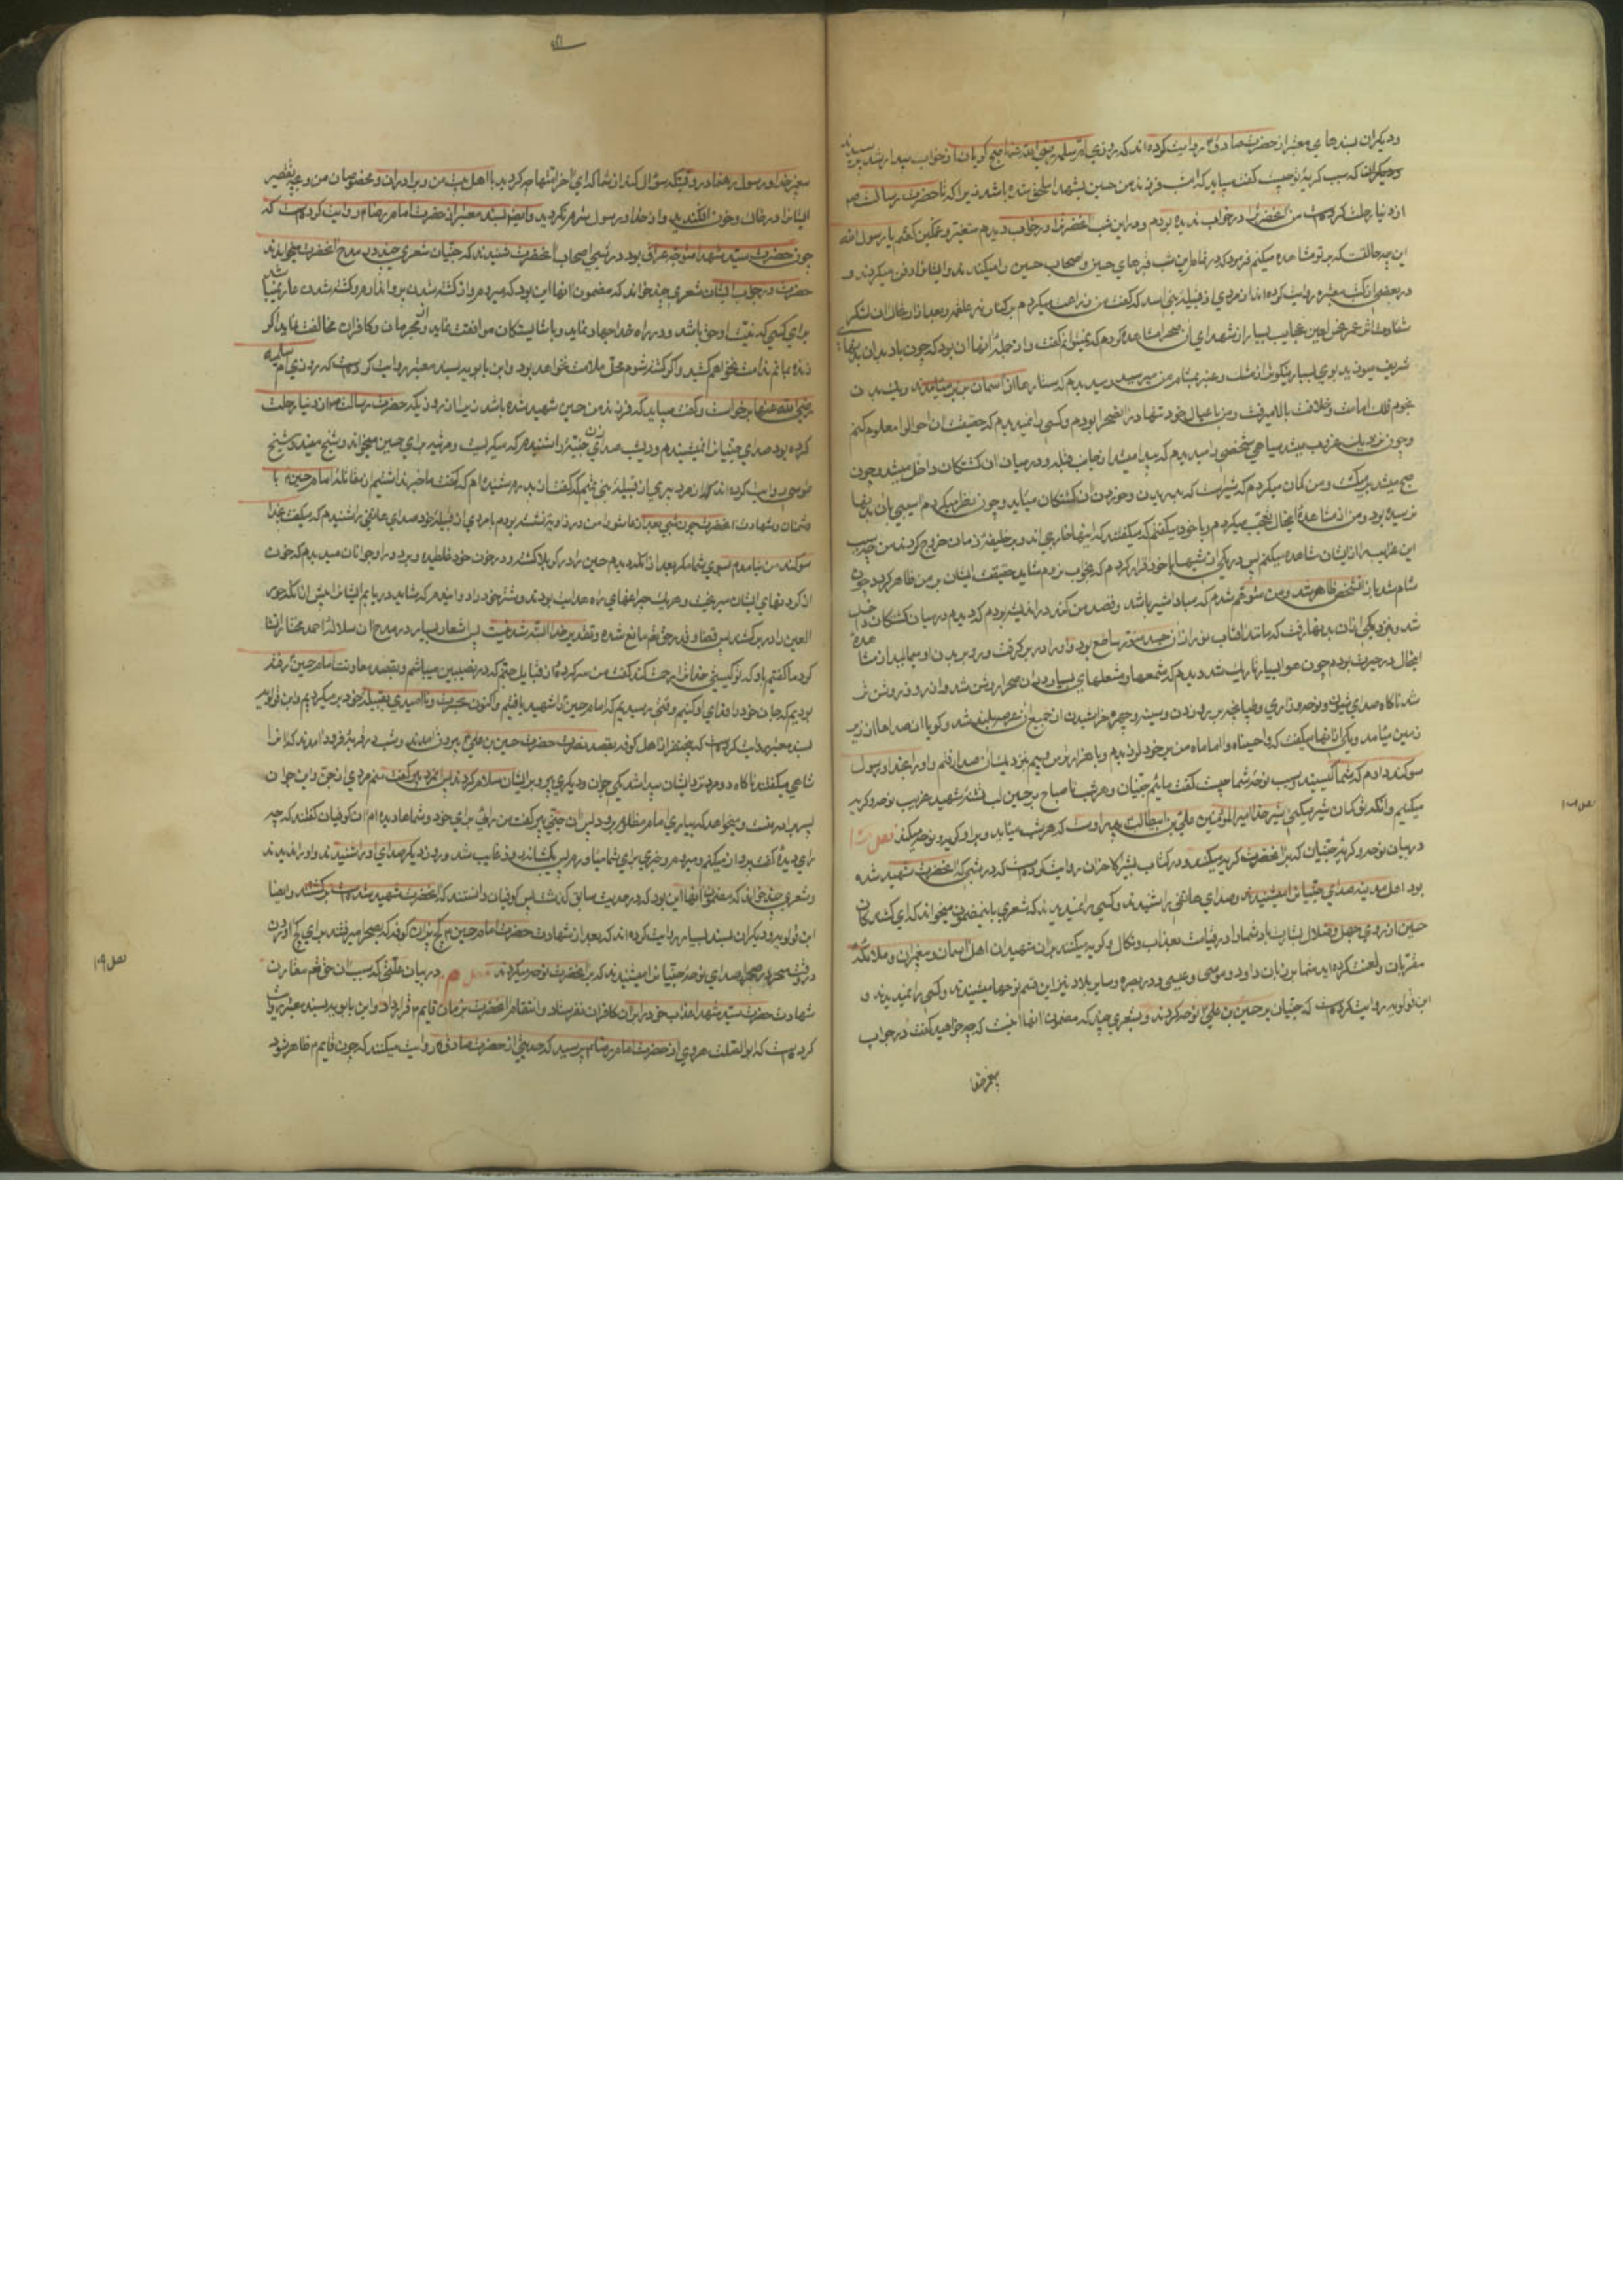 ودیگران بسندهای معتبر از حضرت صادق ع روایت کرده‌اند که روزی ام سلمه رضی الله عنها صبح کریان از خواب بیدار شد پرسیدند
که سبب کریهٔ تو چیست گفت میباید که امشب فرزند من حسین شهید شده باشد زیرا که تا حضرت رسالت ص
از دنیا رحلت کرده است من آنحضرت را در خواب ندیده بودم ودر این شب آنحضرت را در خواب دیدم متغیر و غمگین گفتم یا رسول الله
این چه حالتست که بر تو مشاهده میکنم فرمود که در تمام این شب قبرهای حسین واصحاب حسین را میکندم وایشانرا دفن میکردم و
در بعضی از کتب معتبره روایت کرده‌اند از مردی از قبیلهٔ بنی اسد که گفت من زراعت میکردم بر کنار نهر علقمه وبعد از ارتحال ان لشکر
شقاوت اثر عمر نحس لعین عجایب بسیار از شهدای ان صحرا مشاهده کردم که نمیتوانم گفت واز جمله انها ان بود که چون باد بران بدنهای
شریف میوزید بوی بسیار نیکو تر از مشک وعنبر بمشام من میرسید ومیدیدم که ستارها از آسمان بزیر میآمدند
نجوم فلک امامت وخلافت بالا میرفت ومن با عیال خود تنها در انصحرا بودم وکسی را نمیدیدم که حقیقت ان احوال را معلوم کنم
وچون نزدیک غروب میشد سیاهی شخصی را میدیدم که پیدا میشد از جانب قبله ودر میان ان کشتکان داخل میشد وچون
صبح میشد بر میکشت ومن کمان میکردم که شیریست که بدریدن وخوردن ان کشتکان میآید وچون نظر میکردم اسیبی بان بدنها
نرسیده بود ومن از مشاهدهٔ اینحال تعجب میکردم وبا خود میگفتم که میگفتند که اینها خارجی اند وبر خلیفهٔ زمان خروج کردند من چه سبب
این غرایب را از ایشان مشاهده میکنم پس در یکی از شبها با خود قرار کردم که بخواب نروم شاید حقیقت ایشان بر من ظاهر گردد چون
شام شد باز آنشخص ظاهر شد ومن متوهم شدم که مبادا شیر باشد وقصد من کند در اندیشه بودم که دیدم در میان کشتکان داخل
شد ونزد یکی از ان بدنها رفت که مانند آفتاب نور از ان جسد منور ساطع بود واو را در بر گرفت ورو بر بدن او میمالید از مشاهدهٔ
اینحال در حیرت بودم چون هوا بسیار تاریک شد دیدم که شمعها ومشعلهای بسیار در ان صحرا روشن شد وانرا روز روشن
شد ناکاه صدای شیون ونوحه وزاری وطپانچه بر رو زدن وسینه وچهره خراشیدن از جمیع ان عرصه بلند شد وکویا ان صداها از زیر
زمین میآمد ویکی از انها میگفت که واحسیناه وااماماه من بر خود لرزیدم وبا هزار ترس وبیم نزدیک ان صدا رفتم واو را بخدا ورسول
سوگند دادم که شما کیستید وسبب نوحهٔ شما چیست گفت مائیم جنیان وهر شب تا صباح بر حسین لب تشنه شهید غریب نوحه وکریه
میکنیم وانکه تو کمان شیر میکنی شیر خدا امیر المؤمنین علی بن ابیطالب پدر اوست که هر شب میآید وبر او کریه ونوحه میکند فصل
در بیان نوحه وکریهٔ جنیان که بر آنحضرت کریه میکنند ودر کتاب بشیر الاحزان روایت کرده است که در شبی که آنحضرت شهید شده
بود اهل مدینه صدای جنیان را میشنیدند وصدای هاتفی را شنیدند وکسی را نمیدیدند که شعری باینمضمون میخواند که ای کشندکان
حسین از روی جهل وضلال بشارت باد شما را در قیامت بعذاب ونکال وکریه میکنند بر ان شهیدان اهل آسمان وپیغمبران وملائکه
مقربان ولعنت کرده اید شما بر زبان داود وموسی وعیسی ودر بصره وسایر بلاد نیز این قسم نوحها میشنیدند وکسی را نمیدیدند و
ابن قولویه روایت کرده است که جنیان بر حسین بن علی ع نوحه کردند وشعری چند که مضمون انها اینست که چه خواهید گفت در جواب
پیغمبر خدا
پیغمبر خدا ورسول رهنما در وقتیکه سؤال کند از شما که ای آخر امتها چه کردید با اهل بیت من وبرادران ومخصوصان من وبی تقصیر
ایشانرا در خاک وخون افکندید واز خدا ورسول شرم نکردید وایضا بسند معتبر از حضرت امام رضا ع روایت کرده است که
چون حضرت سید شهدا متوجه عراق بود در شبی اصحاب آنحضرت شنیدند که جنیان شعری چند در مدح آنحضرت میخواندند
حضرت در جواب ایشان شعری چند خواند که مضمون انها این بود که میروم واز کشته شدن پروا ندارم وکشته شدن عار نمیباشد
برای کسی که نیت او حق باشد ودر راه خدا جهاد نماید وبا شایستکان موافقت نماید واز مجرمان وکافران مخالفت نماید اگر
زنده مانم ندامت نخواهم کشید واگر کشته شوم محل ملامت نخواهد بود وابن بابویه بسند معتبر روایت کرده است که روزی ام سلمه
رضی الله عنها برخواست وگفت میباید که فرزند من حسین شهید شده باشد زیرا از روزیکه حضرت رسالت ص از دنیا رحلت
کرده بود صدای جنیان را نشنیدم ودیشب صدای زن جنیهٔ را شنیدم که میکریست ومرثیه برای حسین میخواند وشیخ مفید وشیخ
طوسی روایت کرده اند که از مرد پیری از قبیلهٔ بنی تمیم که گفت از پدرم شنیده ام که گفت ما خبر نداشتیم از مقاتلهٔ امام حسین ع با
دشمنان وشهادت آنحضرت چون شبی بعد از عاشورا من در ذاویه نشسته بودم با مردی از قبیلهٔ خود صدای هاتفی را شنیدم که میگفت بخدا
سوگند من نیامدم بسوی شما مگر بعد از انکه دیدم حسین را در کربلا کشته ودر خون خود غلطیده ودر دور او جوانان میدیدم که خون
از گردنهای ایشان میریخت وهر یک چراغهای راه هدایت بودند وشتر خود را دوانیدم که شاید دریابم ایشانرا پیش از انکه حور
العین را در بر کشند پس قضا وقدر حق تعم مانع شد وتقدیر خدا البته شدنیست پس اشعار بسیار در مدح ان سلالهٔ احمد مختار انشا
کرد ما گفتیم باو که تو کیستی خدا ترا رحمت کند گفت من سر کردهٔ از قبایل جنم که در نصیبین میباشم وبقصد معاونت امام حسین ع رفته
بودیم که جان خود را فدای او کنیم وقتی رسیدیم که امام حسین را شهید یافتیم واکنون بحیرت وناامیدی بقبیلهٔ خود بر میکردیم وابن قولویه
بسند معتبر روایت کرده است که پنج نفر از اهل کوفه بقصد نصرت حضرت حسین بن علی ع بیرون امدند وشب در قریهٔ فرود امدند که انرا
شاهی میگفتند ناکاه دو مرد نزد ایشان پیدا شد یکی جوان ودیگری پیر وبر ایشان سلام کردند پس انمرد پیر گفت منم مردی از جن واین جوان
پسر برادر منست ومیخواهد که بیاری امام مظلوم برود پس ان جنی پیر گفت من رایی برای خود وشما دیده ام ان کوفیان گفتند که چه
رای دیدهٔ گفت پرواز میکنم ومیروم وخبری برای شما میآورم پس یکشبانه روز غایب شد وروز دیگر صدای او را شنیدند واو را ندیدند
وشعری چند خواند که مضمون انها این بود که در حدیث سابق گذشت پس کوفیان دانستند که آنحضرت شهید شده است وبرگشتند وایضا
ابن قولویه ودیگران بسند بسیار روایت کرده اند که بعد از شهادت حضرت امام حسین ع کچ پزان کوفه که بصحرا میرفتند برای کچ آوردن
در وقت سحر در صحرا صدای نوحهٔ جنیان را میشنیدند که بر آنحضرت نوحه میکردند فصل در بیان علتی که بسبب ان حق تعم مقارن
شهادت حضرت سید شهدا عذاب حق را بر ان کافران نفرستاد وانتقام آنحضرت بزمان قایم ع قرار داد وابن بابویه بسند معتبر روایت
کرده است که ابوالصلت هروی از حضرت امام رضا ع پرسید که حدیثی از حضرت صادق ع روایت میکنند که چون قایم ع ظاهر شود